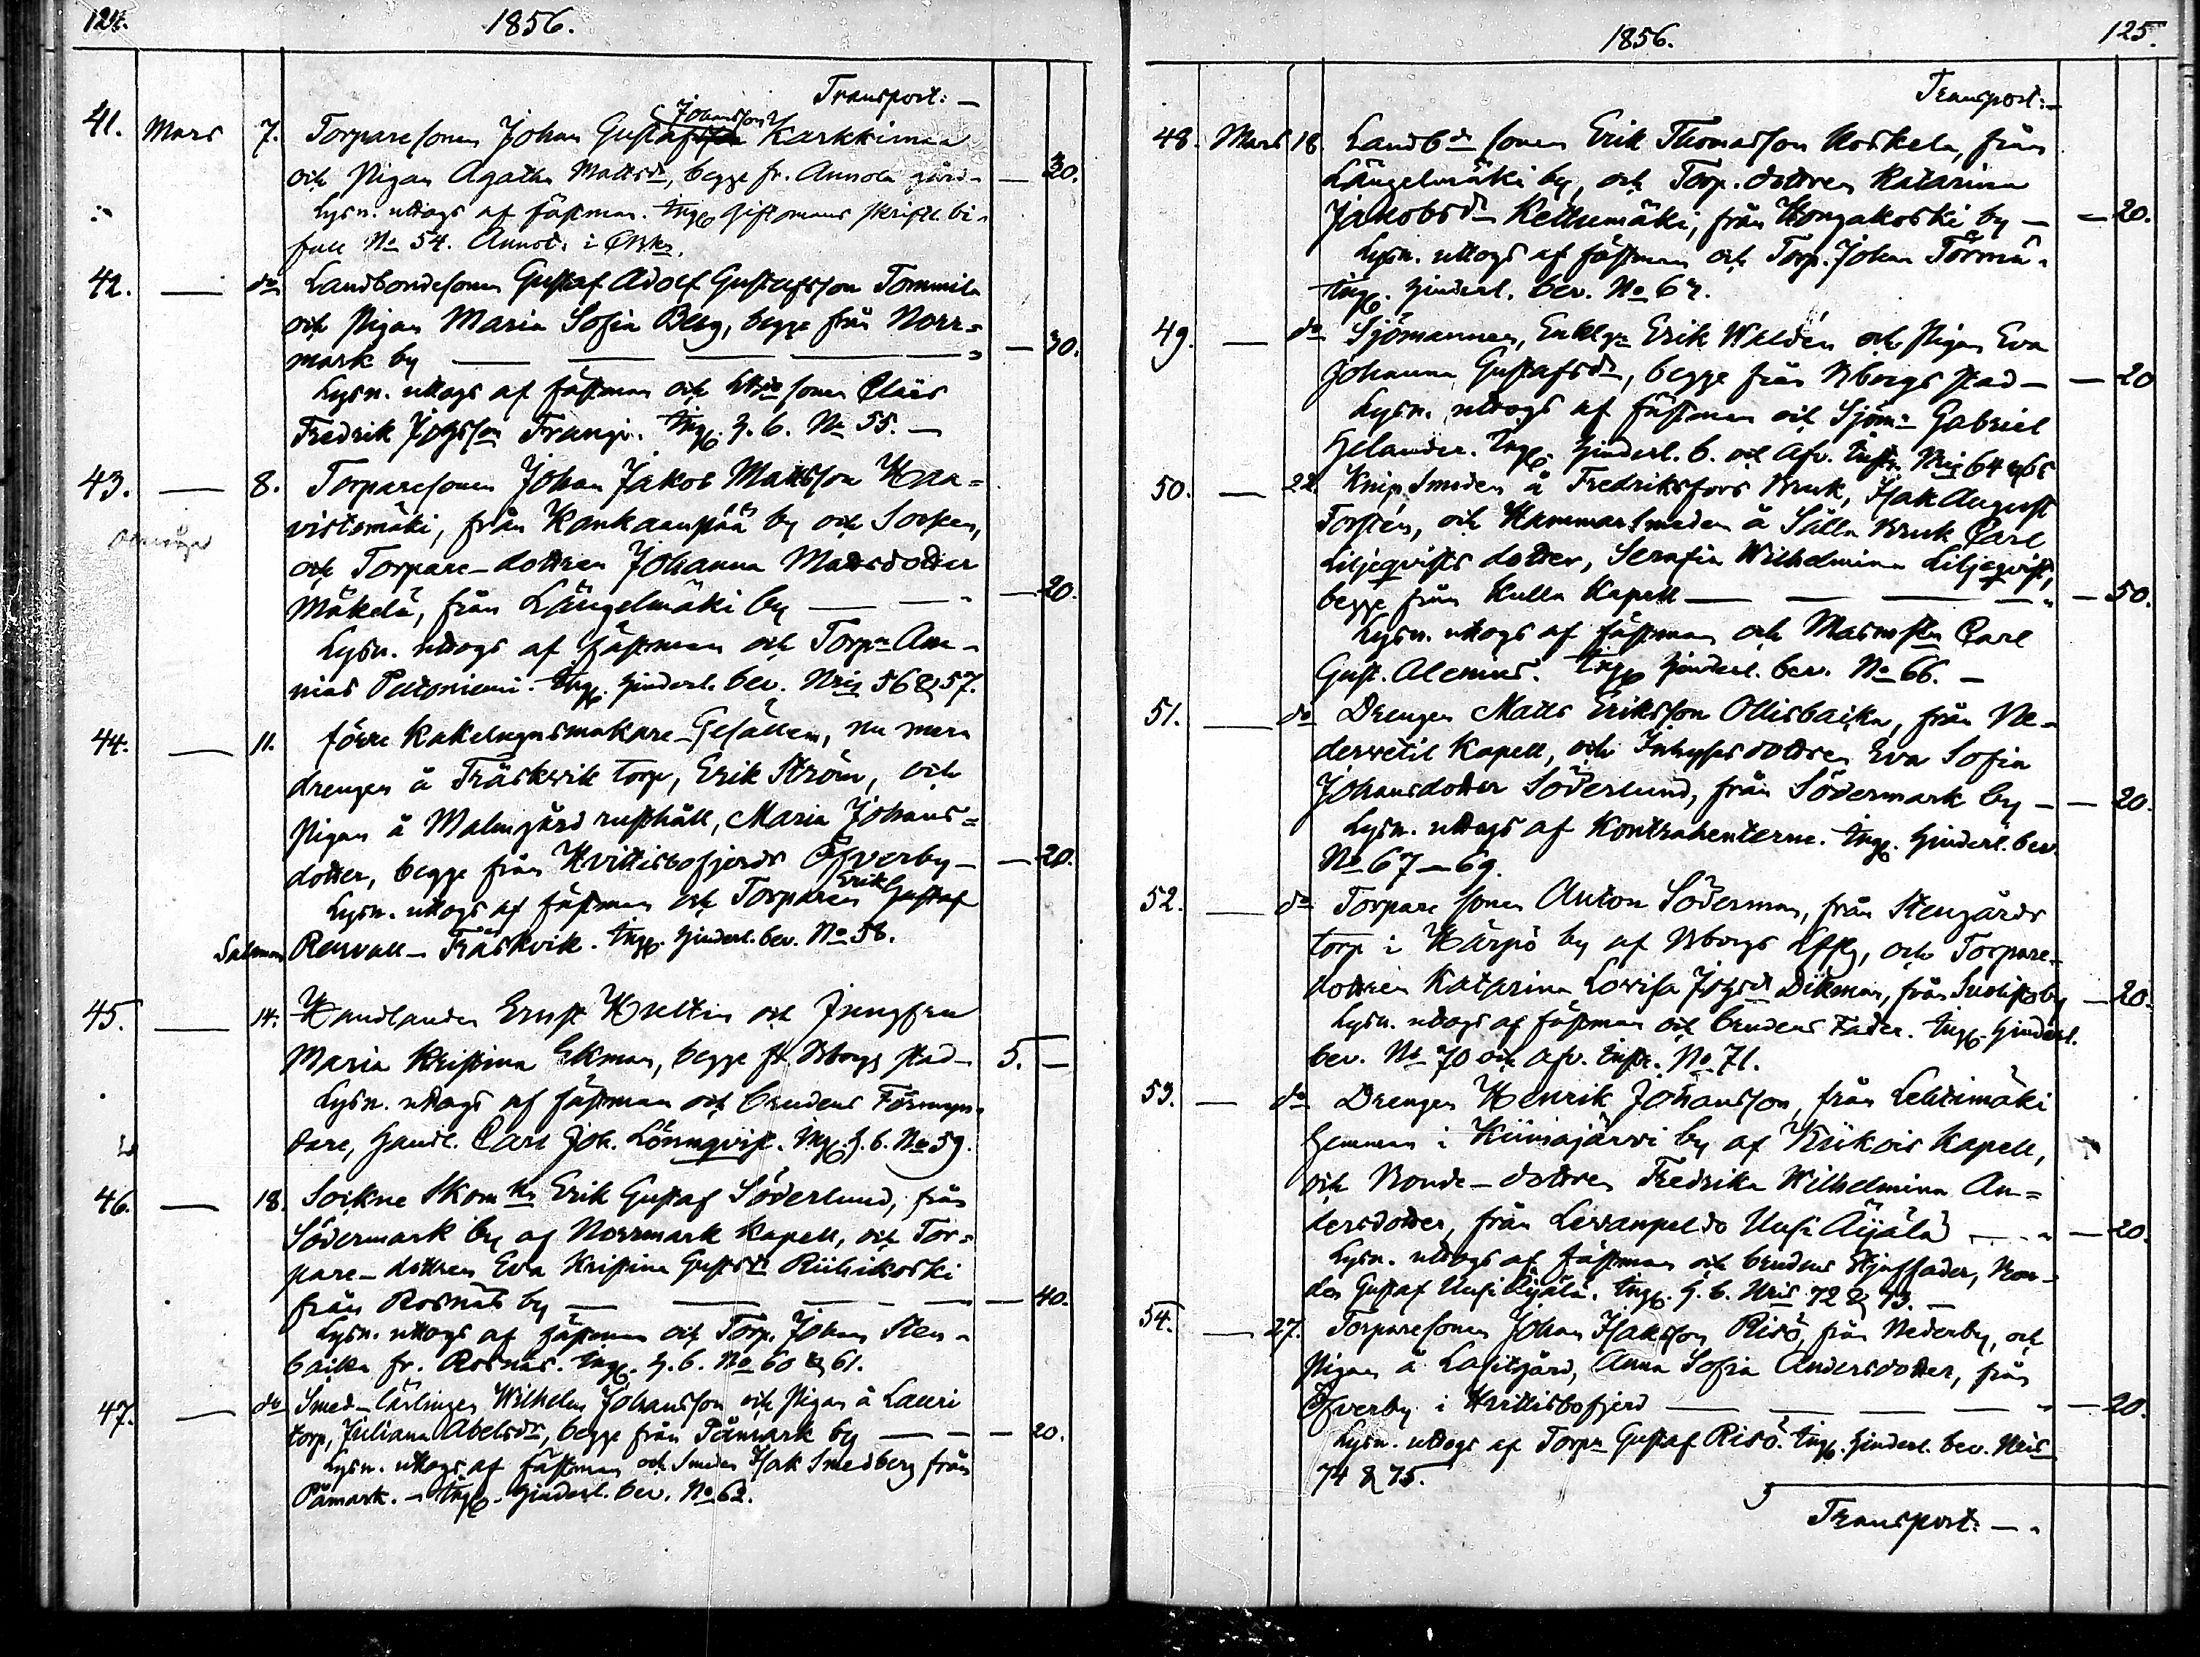 124.
1856.
Transport: —
41. Mars 7. Torparesonen Johan Gustafsson Johansson Karkkimaa
och Pigan Agatha Mattsdr, begge fr. Annola gård — — 30.
Lysn. uttogs af fästman. Ing. Giftomans skriftl. bi-
fall No 54. Annot. i
42. — do Landbondesonen Gustaf Adolf Gustafsson Tommila
och Pigan Maria Sofia Berg, begge från Norr=
mark by — — — — — 30.
Lysn. uttogs af fästman och sonen Claës
Fredrik Frangi. Ing. H. b. No 55. —
43. — 8. Torparesonen Johan Jakob Mattsson Haa=
vistomäki, från Kankaanpää by och Socken,
och Torpare-dottren Johanna Mattsdotter
Mäkelä, från Längelmäki by — — — 20.
Lysn. uttogs af fästman och Torpn Ana-
nias Petoniemi. Ing. Hinderl. bev. Nris 56 & 57.
44. — 11. förre Kakelugnsmakare-Gesällen, nu mera
drengen å Träskvik torp, Erik Ström, och
Pigan å Malmgård rusthåll, Maria Johans=
dotter, begge från Hvittisbofjerds Öfverby — — 20.
Lysn. uttogs af fästman och Torparen Erik Gustaf
Salomon Renvall — Träskvik. Ing. Hinderl. bev. No 58.
45. — 14. Handlanden Ernst Hultin och Jungfru
Maria Kristina Ekman, begge fr. Bborgs stad — 5. —
Lysn. uttogs af fästman och brudens Förmyn-
dare, Handl. Carl Joh. Lönnqvist. Ing. H. b. No 59.
46. — 18. Sockne Skom Erik Gustaf Söderlund, från
Södermark by af Norrmark Kapell, och Tor=
pare-dottren Eva Kristina Gustsdr Riihikoski
från Rosnäs by — — — — — 40.
Lysn. uttogs af fästman och Torp. Johan Sten-
backa fr. Rosnäs. Ing. H. b. No 60 & 61.
47. — do Smed-lärlingen Wilhelm Johansson och Pigan å Lauri
torp, Juliana Abelsdr, begge från Påmark by — — — 20.
Lysn. uttogs af fästman och Smeden Isak Smedberg från
Påmark. — Ing. Hinderl. bev. No 62.
1856.
125.
Transport: —
48. Mars 18. Landbde sonen Erik Thomasson Koskela, från
Längelmäki by, och Torp. dottren Katarina
Jakobsdr Kettumäki, från Hongakoski by — — 20.
Lysn. uttogs af fästman och Torp. Johan Törmä.
Ing. Hinderl. bev. No 63.
49. — do Sjömannen, Enklgn Erik Waldén och Pigan Eva
Johanna Gustafsdr, begge från Bborgs stad — — 20
Lysn. uttogs af fästman och Sjömn Gabriel
Helander. Ing. Hinderl. b. och Afv. Nris 64 & 65
50. — 22. Knip Smeden å Fredriksfors Bruk, Isak August
Torstén, och Hammarsmeden å Sälla Bruk Carl
Liljeqvists dotter, Serafia Wilhelmina Liljeqvist,
begge från Kulla Kapell — — — — 50.
Lysn. uttogs af fästman och Masmstn Carl
Gust. Alenius. Ing. Hinderl. bev. No 66. —
51. — do Drengen Matts Eriksson Ollisbacka, från Ne-
dervetil Kapell, och Inhyses dottren Eva Sofia
Johansdotter Söderlund, från Södermark by — — 20.
Lysn. uttogs af Kontrahenterne. Ing. Hinderl. bev.
No 67 — 69.
52. — do Torpare sonen Anton Söderman, från Stengårds
torp i Härpö by af Bborgs , och Torpare-
dottren Katarina Lovisa Dikman, från by — 20.
Lysn. uttogs af fästman och brudens Fader. Ing. Hinderl.
bev. No 70 och afv. No 71.
53. — do Drengen Henrik Johansson, från Lehtimäki
hemman i Kiimajärvi by af Kiikois Kapell,
och Bonde-dottren Fredrika Wilhelmina An=
dersdotter, från Levanpelto Uusi Äijälä — — 20.
Lysn. uttogs af fästman och brudens Styffader, Bon-
den Gustaf Uusi Äijälä. Ing. H. b. Nris 72 & 73. —
54. — 27. Torparesonen Johan Isaksson Risö, från Nederby, och
Pigan å Lasitgård, Anna Sofia Andersdotter, från
Öfverby i Hvittisbofjerd — — — — 20.
Lysn. uttogs af Torpn Gustaf Risö. Ing. Hinderl. bev. Nris
74 & 75.
Transport: —